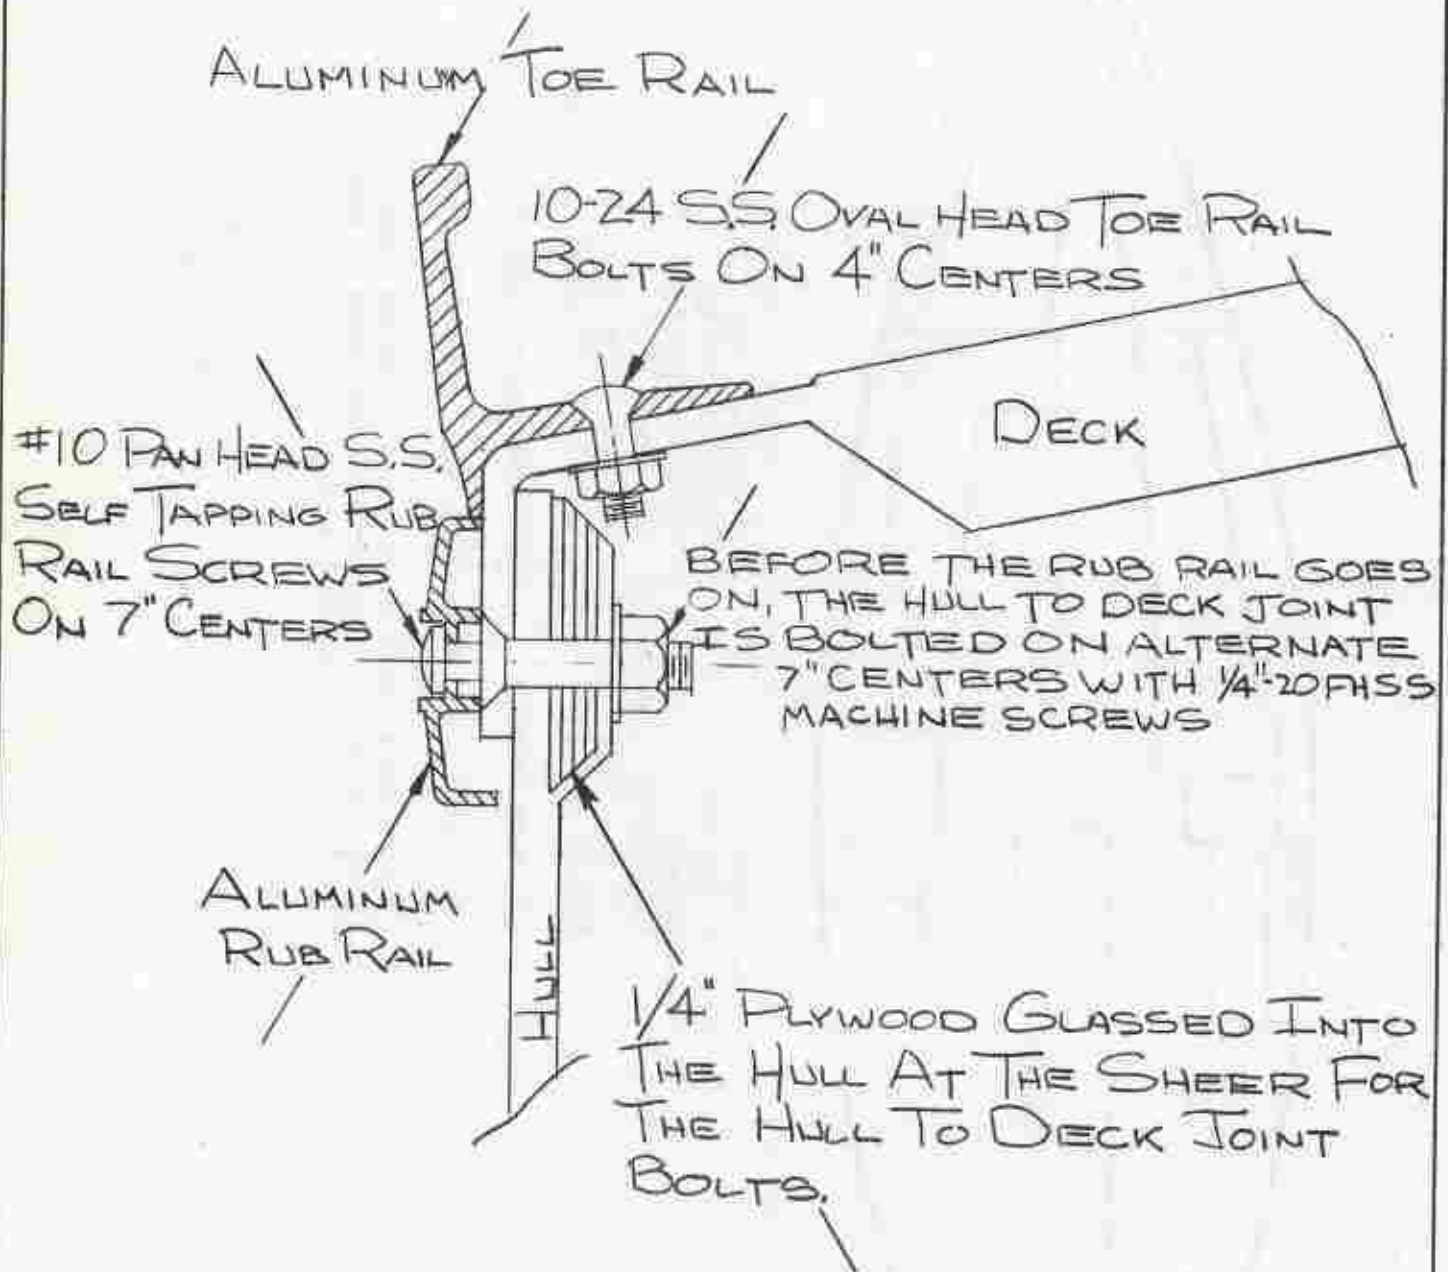 ALUMINUM TOE RAIL
10-24 S.S. OVAL HEAD TOE RAIL
BOLTS ON 4" CENTERS
DECK
#10 PAN HEAD S.S.
SELF TAPPING RUB
RAIL SCREWS
ON 7" CENTERS
BEFORE THE RUB RAIL GOES
ON, THE HULL TO DECK JOINT
IS BOLTED ON ALTERNATE
7" CENTERS WITH 1/4"-20 FHSS
MACHINE SCREWS
ALUMINUM
RUB RAIL
HULL
1/4" PLYWOOD GLASSED INTO
THE HULL AT THE SHEER FOR
THE HULL TO DECK JOINT
BOLTS.